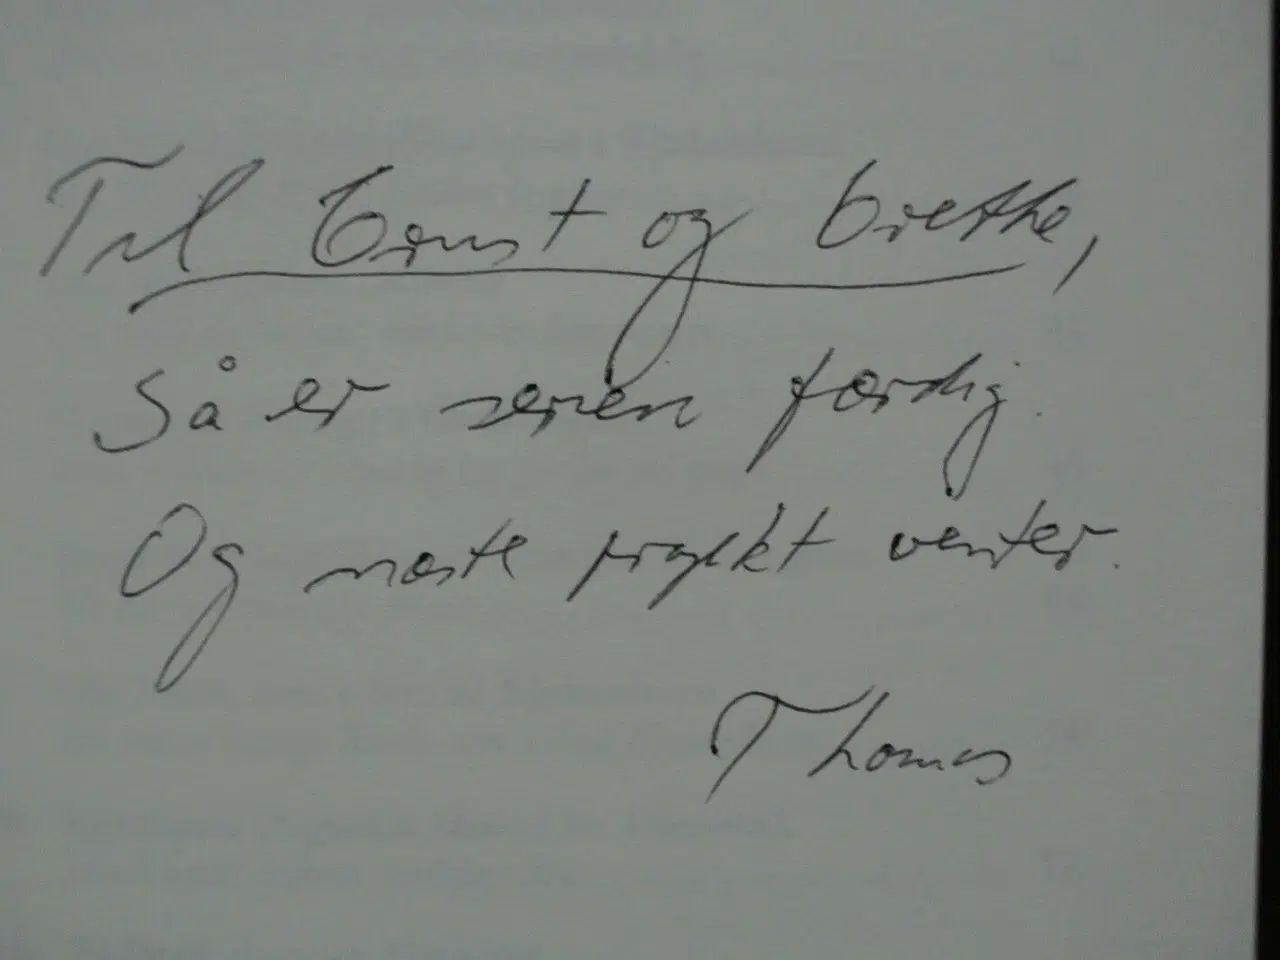 Til Ernst og Grethe,
Så er serien færdig.
Og næste projekt venter.
Thomas